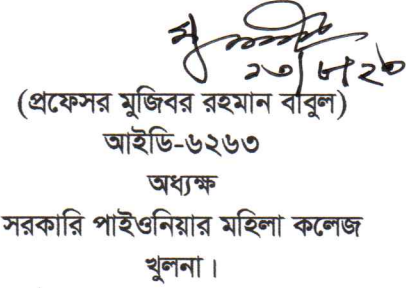 (প্রফেসর মুজিবর রহমান বাবুল)
আইডি-৬২৬৩
অধ্যক্ষ
সরকারি পাইওনিয়ার মহিলা কলেজ
খুলনা।